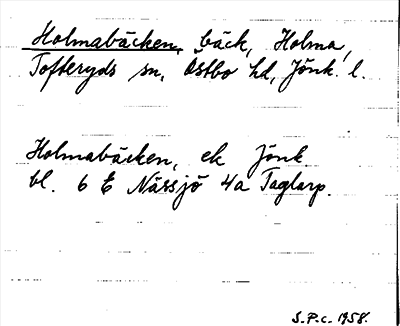 Holmabäcken, bäck, Holma,
Tofteryds sn, Östbo hd, Jönk. l.
Holmabäcken, ek Jönk
bl. 6 E Nässjö 4a Taglarp.
S.P.c. 1958.